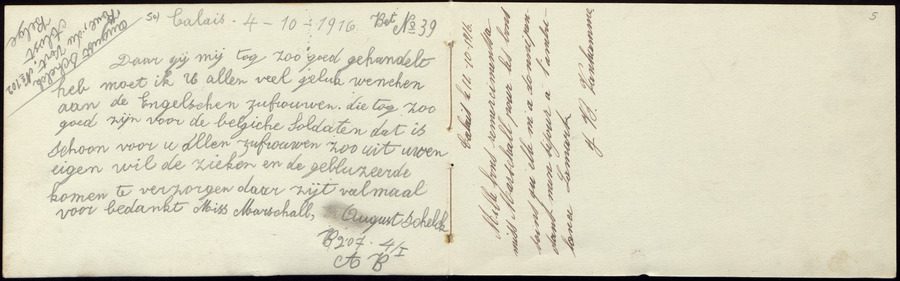 August Schelck
Rue du Fort, No 102
Alost
Belge
54) Calais - 4 - 10 - 1916. Bet No 39
Daar gij mij tog zoo goed gehandelt
heb moet ik U allen veel geluk wenchen
aan de Engelschen zufrouwen. die tog zoo
goed zijn voor de belgiche Soldaten dat is
schoon voor u allen zufrouwen zoo uit uwen
eigen wil de zieken en de gebluzeerde
komen te verzorgen daar zijt valmaal
voor bedankt Miss Marschall,
August Schelck
B207. 4/I
A B
5
Calais le 11.10.1916
Mille fond remerciments a
miss Marschall pour les bons
soins qu elle m a donné pen-
dant mon séjour a l'ambu-
lance Lamarck
J. B. Vanhamme